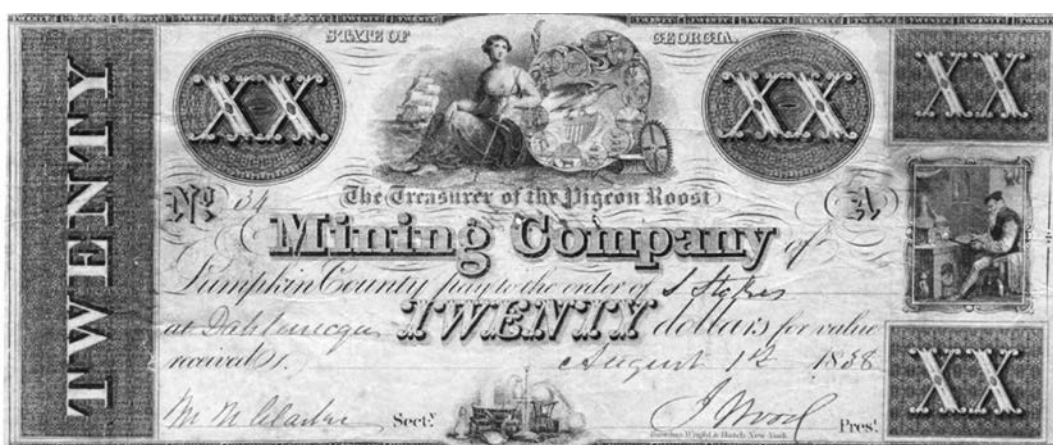 TWENTY TWENTY TWENTY TWENTY
STATE OF GEORGIA.
TWENTY
XX XX XX
The Treasurer of the Pigeon Roost
No 34 A
Mining Company of
Lumpkin County pay to the order of S Stokes
at TWENTY dollars for value
received. August 1st 1838
XX
Sect.y J Wood Pres.t
Rawdon, Wright & Hatch New York.